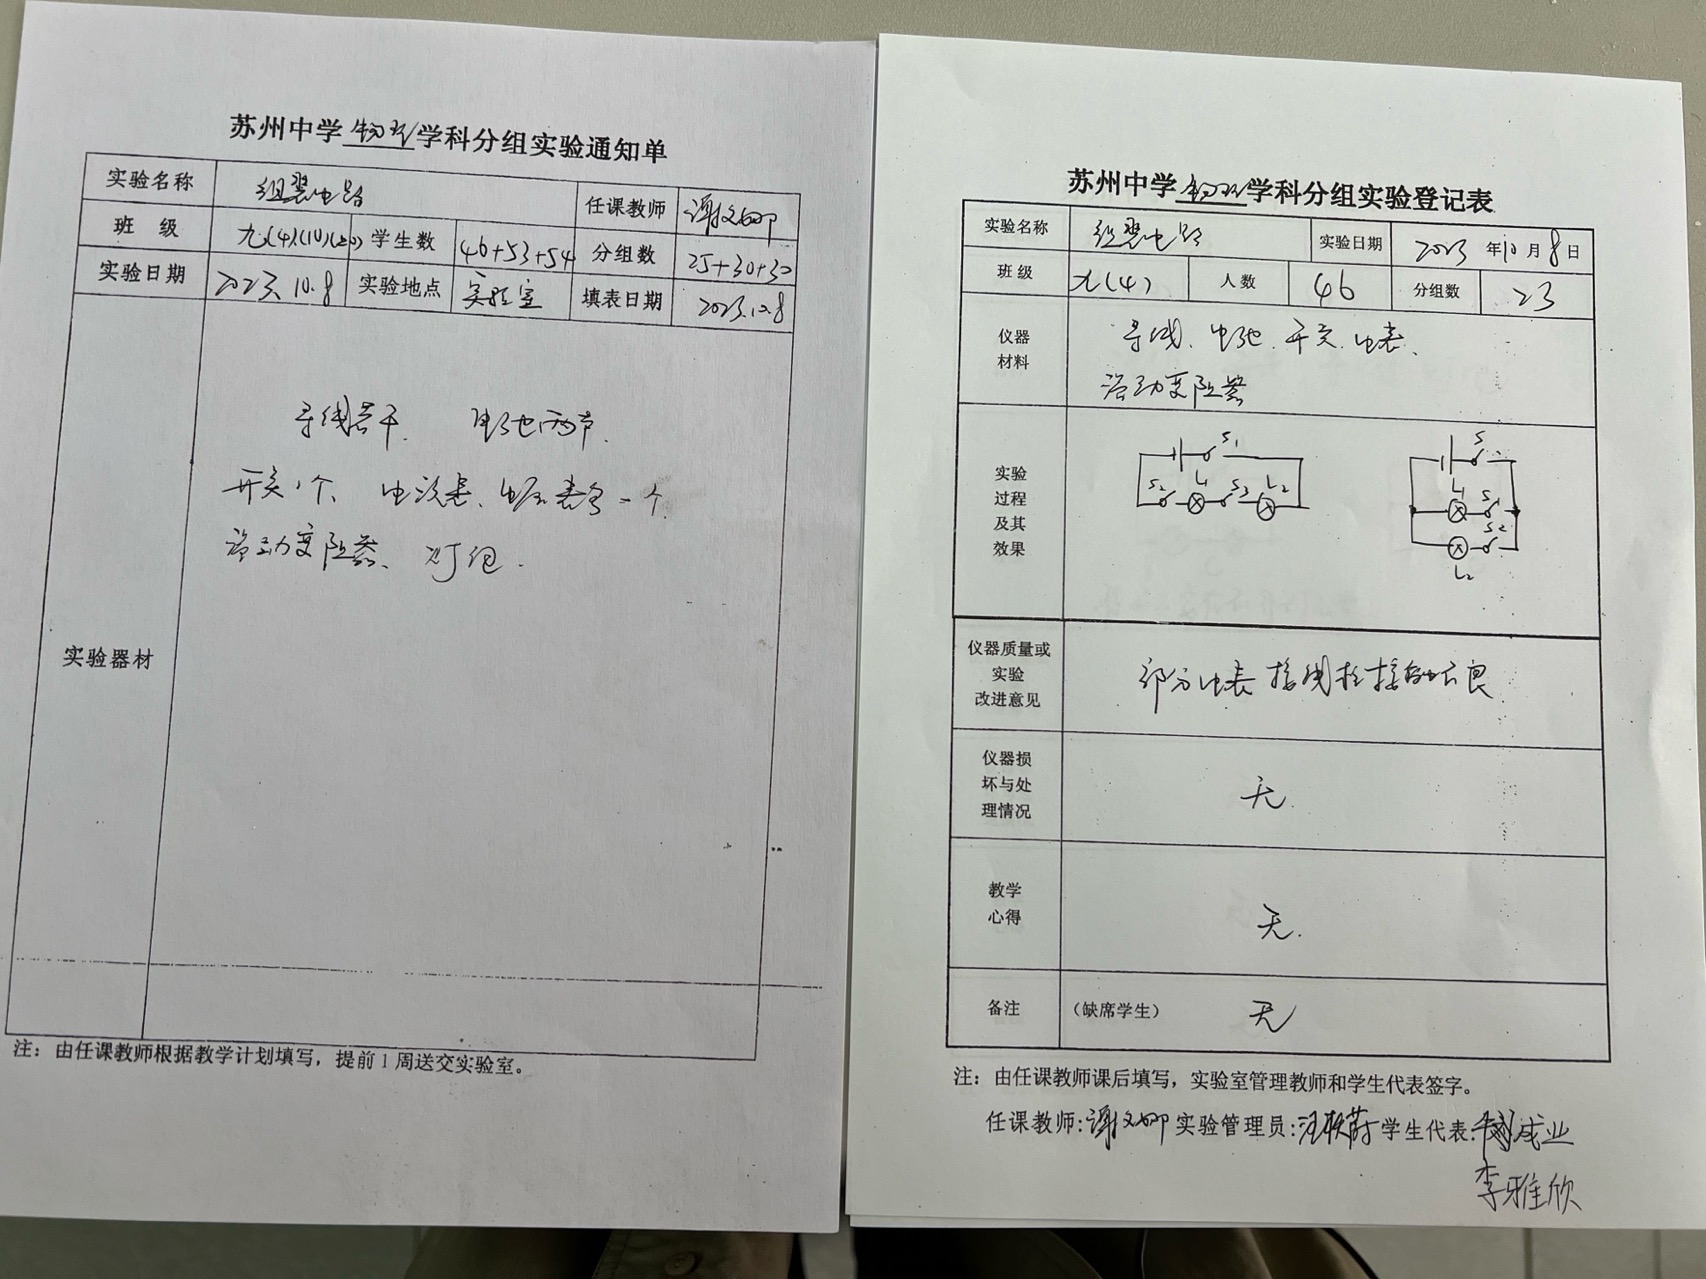 苏州中学物理学科分组实验通知单
实验名称 组装电路 任课教师 谢文娜
班 级 九(4)(10)(20) 学生数 46+53+54 分组数 25+30+30
实验日期 2023.10.8 实验地点 实验室 填表日期 2023.10.8
实验器材
导线若干. 电池两节.
开关1个、电流表、电压表各一个
滑动变阻器、灯泡.
注：由任课教师根据教学计划填写，提前1周送交实验室。
苏州中学物理学科分组实验登记表
实验名称 组装电路 实验日期 2023 年10月8日
班 级 九(4) 人 数 46 分组数 23
仪器材料
导线、电池.开关.电表、
滑动变阻器
实验过程及其效果
S1
S2 L1 S3 L2
S
L1 S1
S2
L2
仪器质量或实验改进意见
部分电表接线柱接触不良
仪器损坏与处理情况
无.
教学心得
无.
备注 (缺席学生) 无
注：由任课教师课后填写，实验室管理教师和学生代表签字。
任课教师:谢文娜 实验管理员: 学生代表:
李雅欣